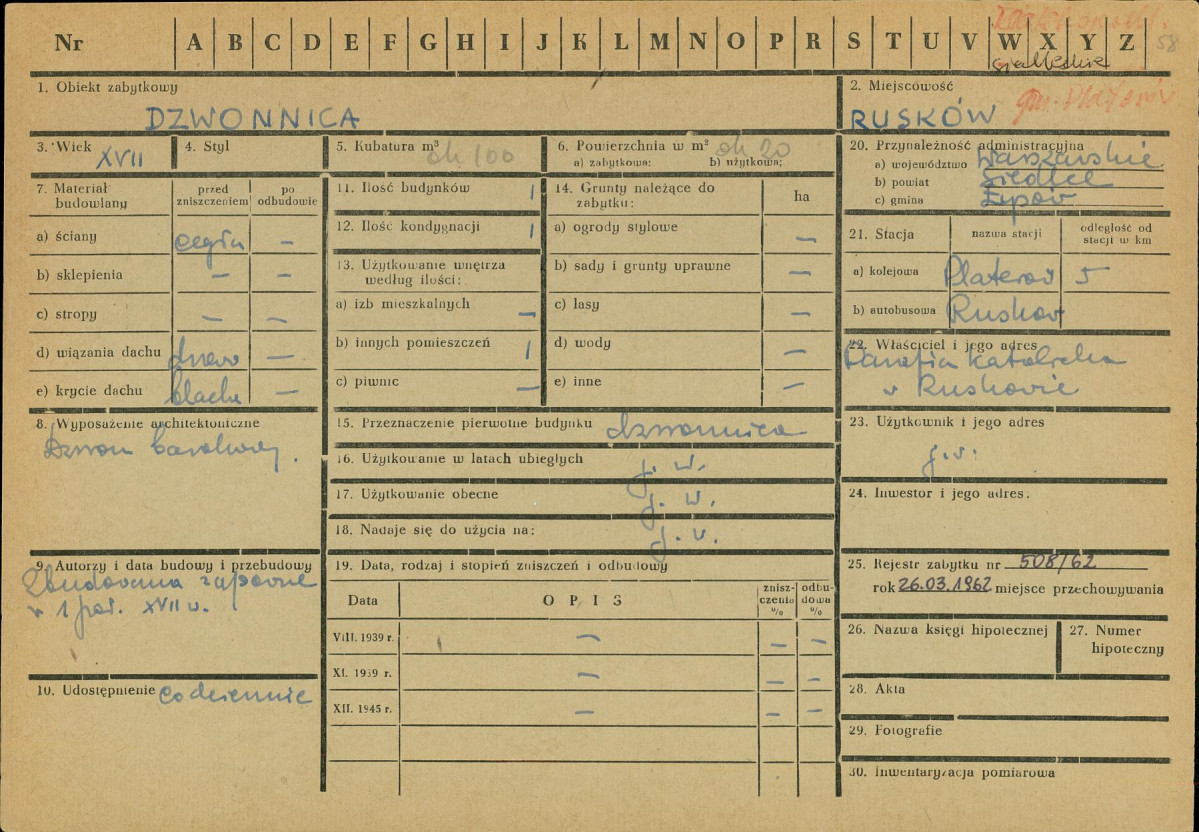 Nr A B C D E F G H I J K L M N O P R S T U V W X Y Z
58
siedleckie
1. Obiekt zabytkowy
DZWONNICA
2. Miejscowość
gm. Platerów
RUSKÓW
3. Wiek XVII
4. Styl
5. Kubatura m³ ok 100
6. Powierzchnia w m² ok 20
a) zabytkowa: b) użytkowa:
7. Materiał budowlany
przed zniszczeniem
po odbudowie
a) ściany cegła —
b) sklepienia — —
c) stropy — —
d) wiązania dachu drewno —
e) krycie dachu blacha —
8. Wyposażenie architektoniczne
Dzwon barokowy.
9. Autorzy i data budowy i przebudowy
Zbudowana zapewne
w 1 poł. XVII w.
10. Udostępnienie codziennie
11. Ilość budynków 1
12. Ilość kondygnacji 1
13. Użytkowanie wnętrza według ilości:
a) izb mieszkalnych —
b) innych pomieszczeń 1
c) piwnic —
14. Grunty należące do zabytku: ha
a) ogrody stylowe —
b) sady i grunty uprawne —
c) lasy —
d) wody —
e) inne —
15. Przeznaczenie pierwotne budynku dzwonnica
16. Użytkowanie w latach ubiegłych j. w.
17. Użytkowanie obecne j. w.
18. Nadaje się do użycia na: j. w.
19. Data, rodzaj i stopień zniszczeń i odbudowy
Data OPIS zniszczenia % odbudowa %
VIII. 1939 r. — — —
XI. 1939 r. — — —
XII. 1945 r. — — —
20. Przynależność administracyjna
a) województwo Warszawskie
b) powiat Siedlce
c) gmina
21. Stacja nazwa stacji odległość od stacji w km
a) kolejowa Platerów 5
b) autobusowa Rusków
22. Właściciel i jego adres
Parafia Katolicka
w Ruskowie
23. Użytkownik i jego adres
j.w.
24. Inwestor i jego adres.
25. Rejestr zabytku nr 508/62
rok 26.03.1962 miejsce przechowywania
26. Nazwa księgi hipotecznej
27. Numer hipoteczny
28. Akta
29. Fotografie
30. Inwentaryzacja pomiarowa